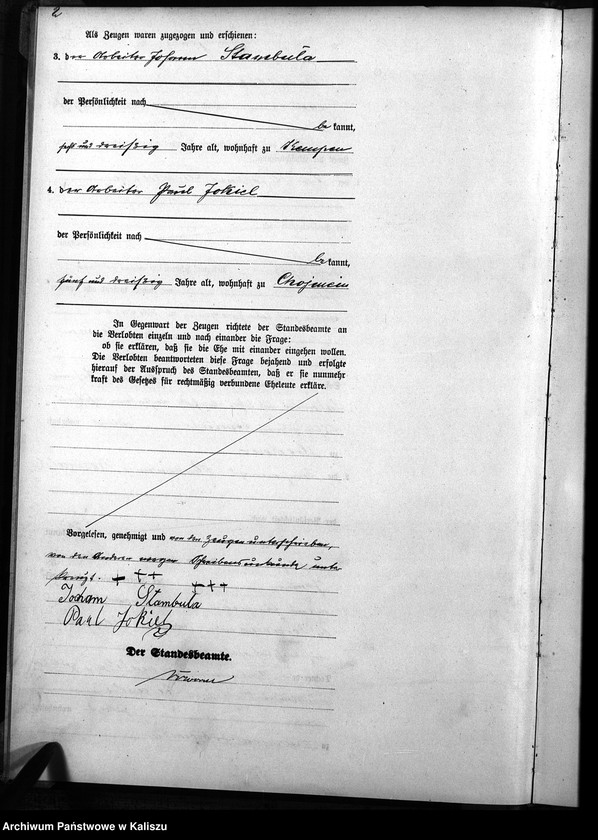 2
Als Zeugen waren zugezogen und erschienen:
3. der Arbeiter Johann Stambuła
der Persönlichkeit nach
be kannt,
sechs und dreißig Jahre alt, wohnhaft zu Kempen
4. der Arbeiter Paul Jokiel
der Persönlichkeit nach
be kannt,
fünf und dreißig Jahre alt, wohnhaft zu Chojencin
In Gegenwart der Zeugen richtete der Standesbeamte an
die Verlobten einzeln und nach einander die Frage:
ob sie erklären, daß sie die Ehe mit einander eingehen wollen.
Die Verlobten beantworteten diese Frage bejahend und erfolgte
hierauf der Ausspruch des Standesbeamten, daß er sie nunmehr
kraft des Gesetzes für rechtmäßig verbundene Eheleute erkläre.
Vorgelesen, genehmigt und von den Zeugen unterschrieben,
von den Anderen wegen Schreibensunkunde unter
kreuzt. +++
+++
Johann Stambuła
Paul Jokiel
Der Standesbeamte.
Archiwum Państwowe w Kaliszu